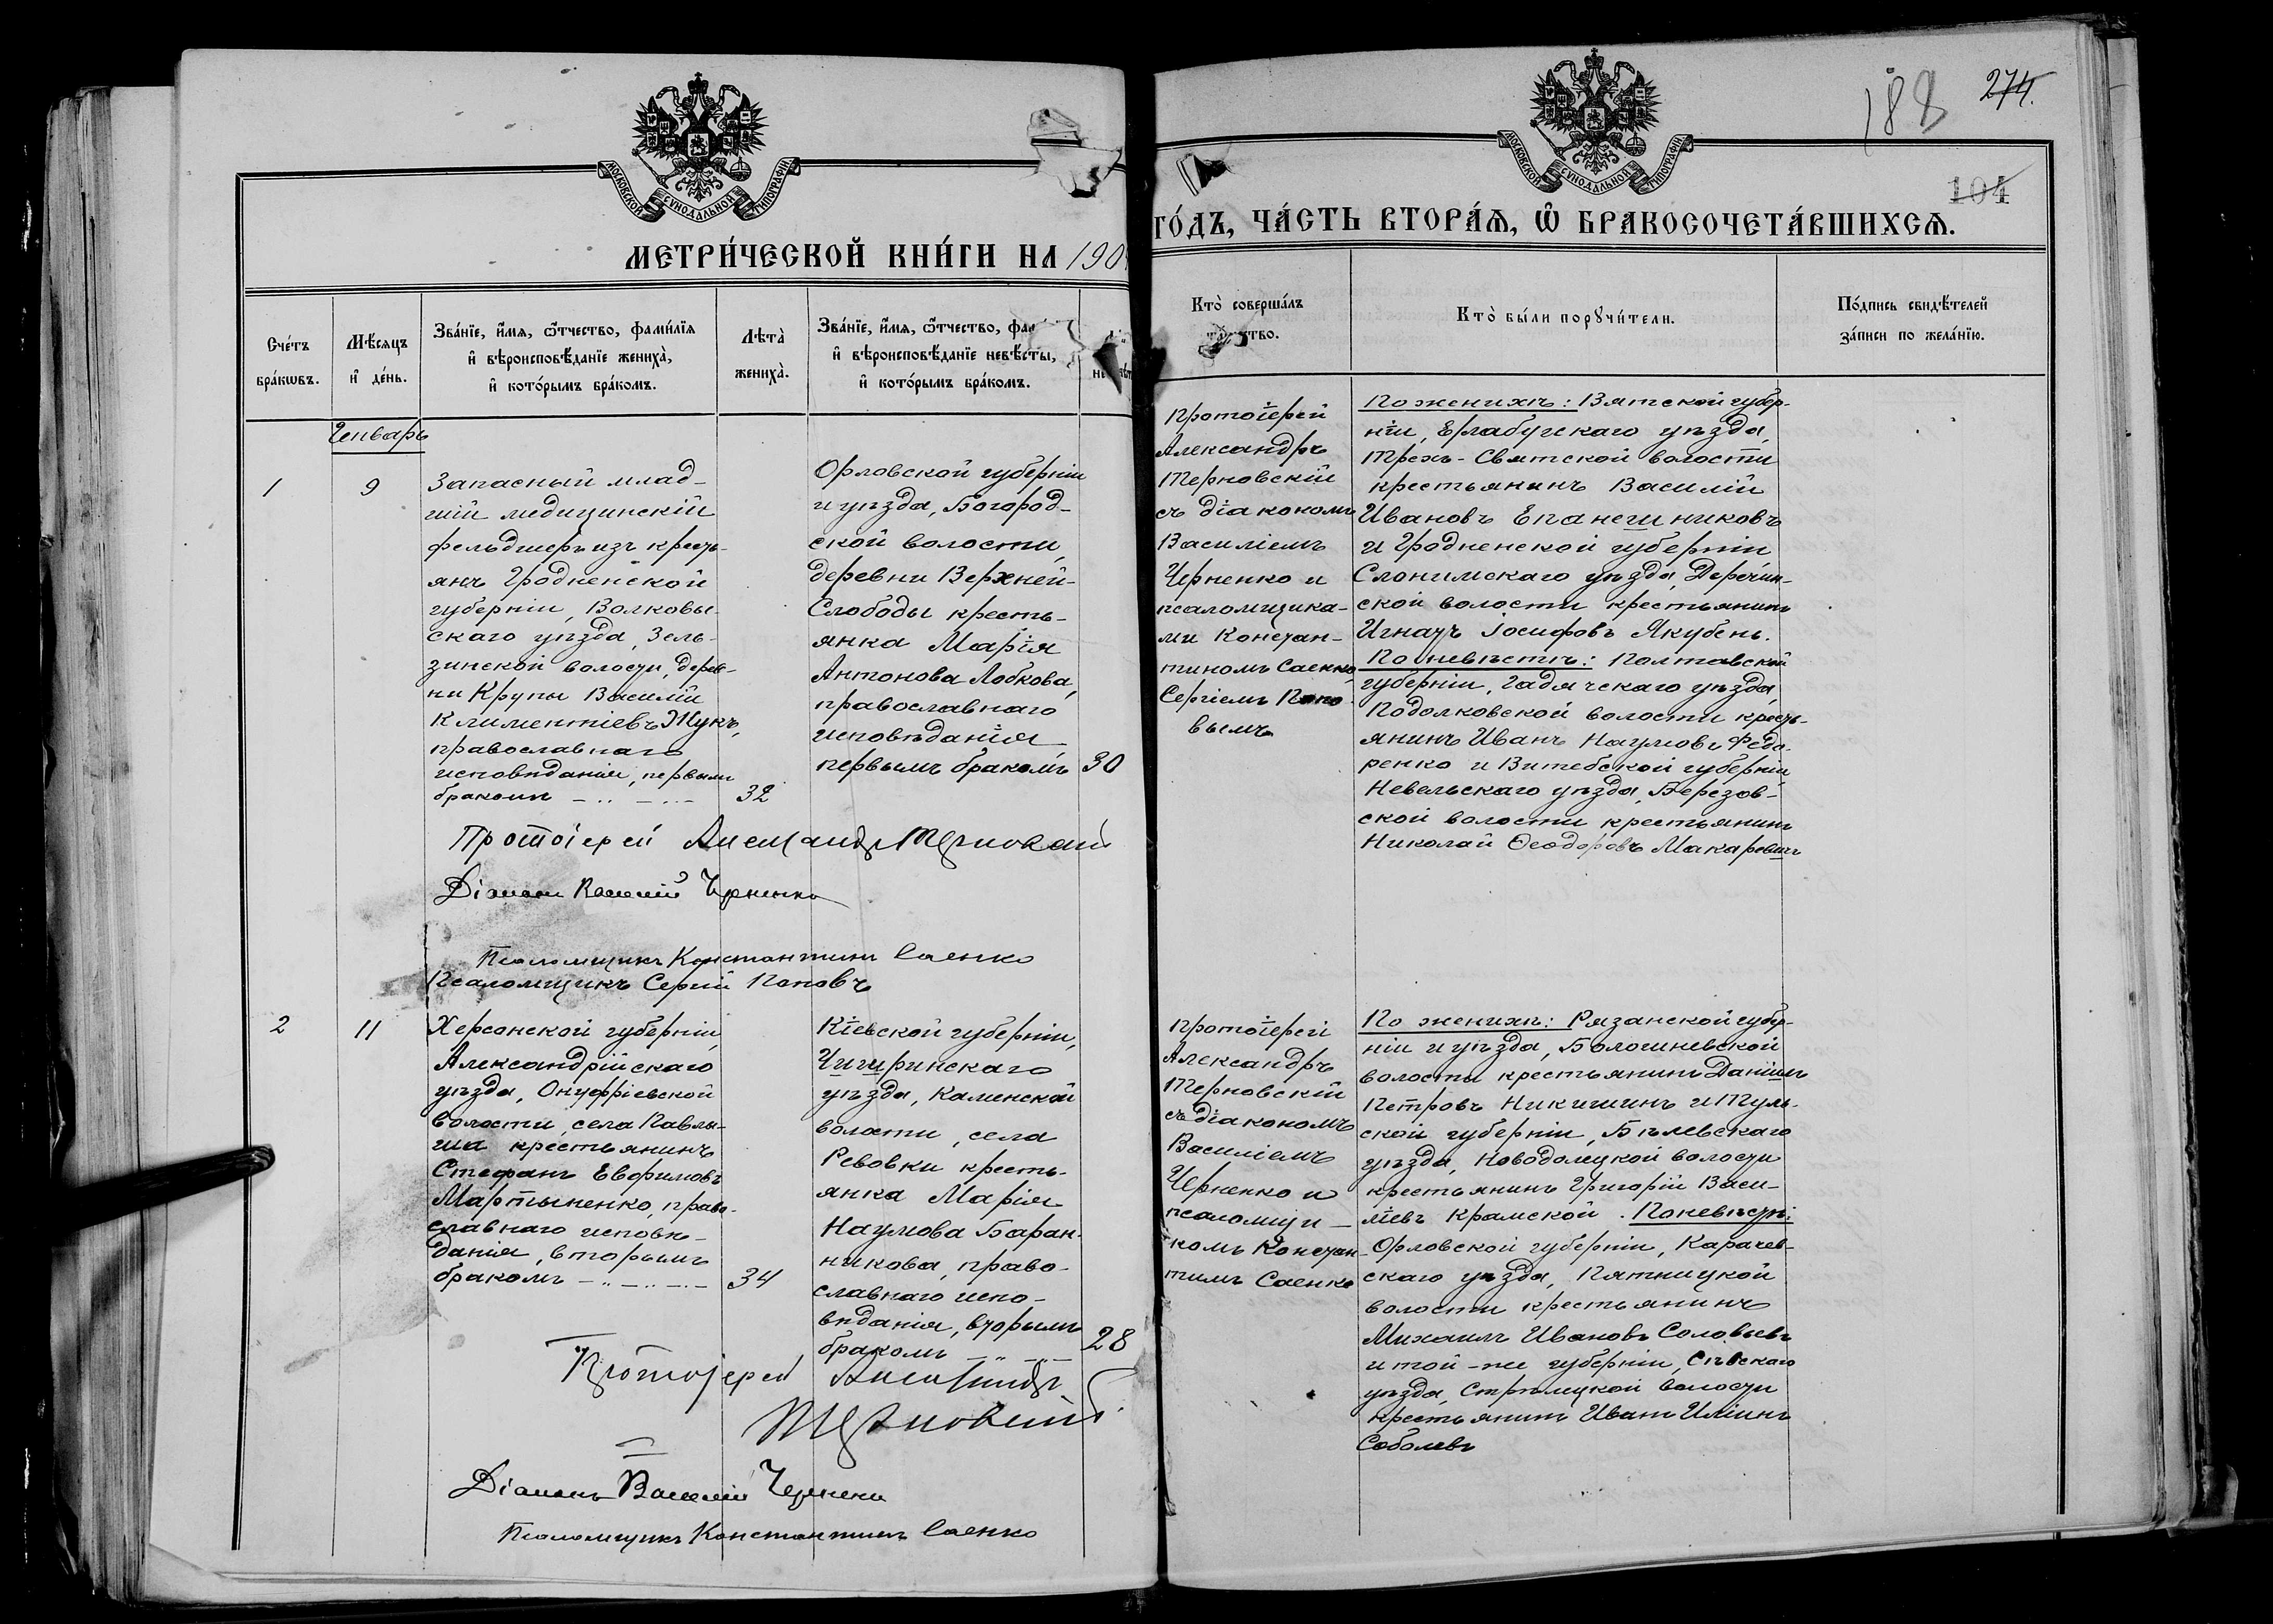 188 274.
104
МОСКОВСКОЙ СѴНОДАЛЬНОЙ ТИПОГРАФІИ
МОСКОВСКОЙ СѴНОДАЛЬНОЙ ТИПОГРАФІИ
МЕТРИ́ЧЕСКОЙ КНИ́ГИ НА 190
ГО́ДЪ, ЧА́СТЬ ВТОРА́Ѧ, Ѡ҆ БРАКОСОЧЕТА́ВШИХСѦ.
Сче́тъ
бра́кѡвъ.
Мѣ́сяцъ
и҆ де́нь.
Зва́нїе, и҆́мѧ, ѻ҆́тчество, фами́лїѧ
и҆ вѣроисповѣ́данїе жениха̀,
и҆ кото́рымъ бра́комъ.
Лѣта̀
жениха̀.
Зва́нїе, и҆́мѧ, ѻ҆́тчество,
и҆ вѣроисповѣ́данїе невѣ́сты,
и҆ кото́рымъ бра́комъ.
Кто̀ соверша́лъ
Кто̀ бы́ли порꙋчи́тели.
По́дпись свидѣ́телей
за́писи по жела́нїю.
Генварь
1
9
Запасный млад-
шій медицинскій
фельдшеръ изъ кресть-
янъ Гродненской
губерніи, Волковы-
скаго уѣзда, Зель-
зинской волости, дерев-
ни Крупы Василій
Климентіевъ Жукъ,
православнаго
исповѣданія, первымъ
бракомъ
32
Орловской губерніи
и уѣзда, Богород-
ской волости,
деревни Верхней-
Слободы кресть-
янка Марія
Антонова Лобкова,
православнаго
исповѣданія
первымъ бракомъ
30
Протоіерей
Александръ
Терновскій
съ діакономъ
Василіемъ
Черненко и
псаломщика-
ми Констан-
тиномъ Саенко
Сергіемъ Попо
вымъ
По женихѣ: Вятской губер-
ніи, Елабугскаго уѣзда,
Трехъ-Святской волости
крестьянинъ Василій
Ивановъ Епанешниковъ
и Гродненской губерніи
Слонимскаго уѣзда, Деречин-
ской волости крестьянинъ
Игнатъ Іосифовъ Якубень.
По невѣстѣ: Полтавской
губерніи, Гадячскаго уѣзда,
Подолковской волости кресть-
янинъ Иванъ Наумовъ Федо-
ренко и Витебской губерніи,
Невельскаго уѣзда, Березов-
ской волости крестьянинъ
Николай Ѳеодоровъ Макаревичъ
Протоіерей Александръ Терновскій
Діаконъ Василій Черненко
Псаломщикъ Константинъ Саенко
Псаломщикъ Сергій Поповъ
2
11
Херсонской губерніи,
Александрійскаго
уѣзда, Онуфріевской
волости, села Павлы-
ша крестьянинъ
Стефанъ Евфимовъ
Мартыненко, право-
славнаго исповѣ-
данія, вторымъ
бракомъ
34
Кіевской губерніи,
Чигиринскаго
уѣзда, Каменской
волости, села
Ревовки кресть-
янка Марія
Наумова Баран-
никова, право-
славнаго испо-
вѣданія, вторымъ
бракомъ
28
Протоіерей
Александръ
Терновскій
съ діакономъ
Василіемъ
Черненко и
псаломщи-
комъ Констан-
тинъ Саенко
По женихѣ: Рязанской губер-
ніи и уѣзда, Бологшевской
волости крестьянинъ Даніилъ
Петровъ Никишинъ и Туль-
ской губерніи, Бѣлевскаго
уѣзда, Новодолецкой волости
крестьянинъ Григорій Васи-
ліевъ Крамской. По невѣстѣ:
Орловской губерніи, Карачев-
скаго уѣзда, Пятницкой
волости крестьянинъ
Михаилъ Ивановъ Соловьевъ
и той-же губерніи, Сѣвскаго
уѣзда, Стрѣлецкой волости
крестьянинъ Иванъ Иліинъ
Соболевъ
Протоіерей Александръ
Терновскій
Діаконъ Василій Черненко
Псаломщикъ Константинъ Саенко